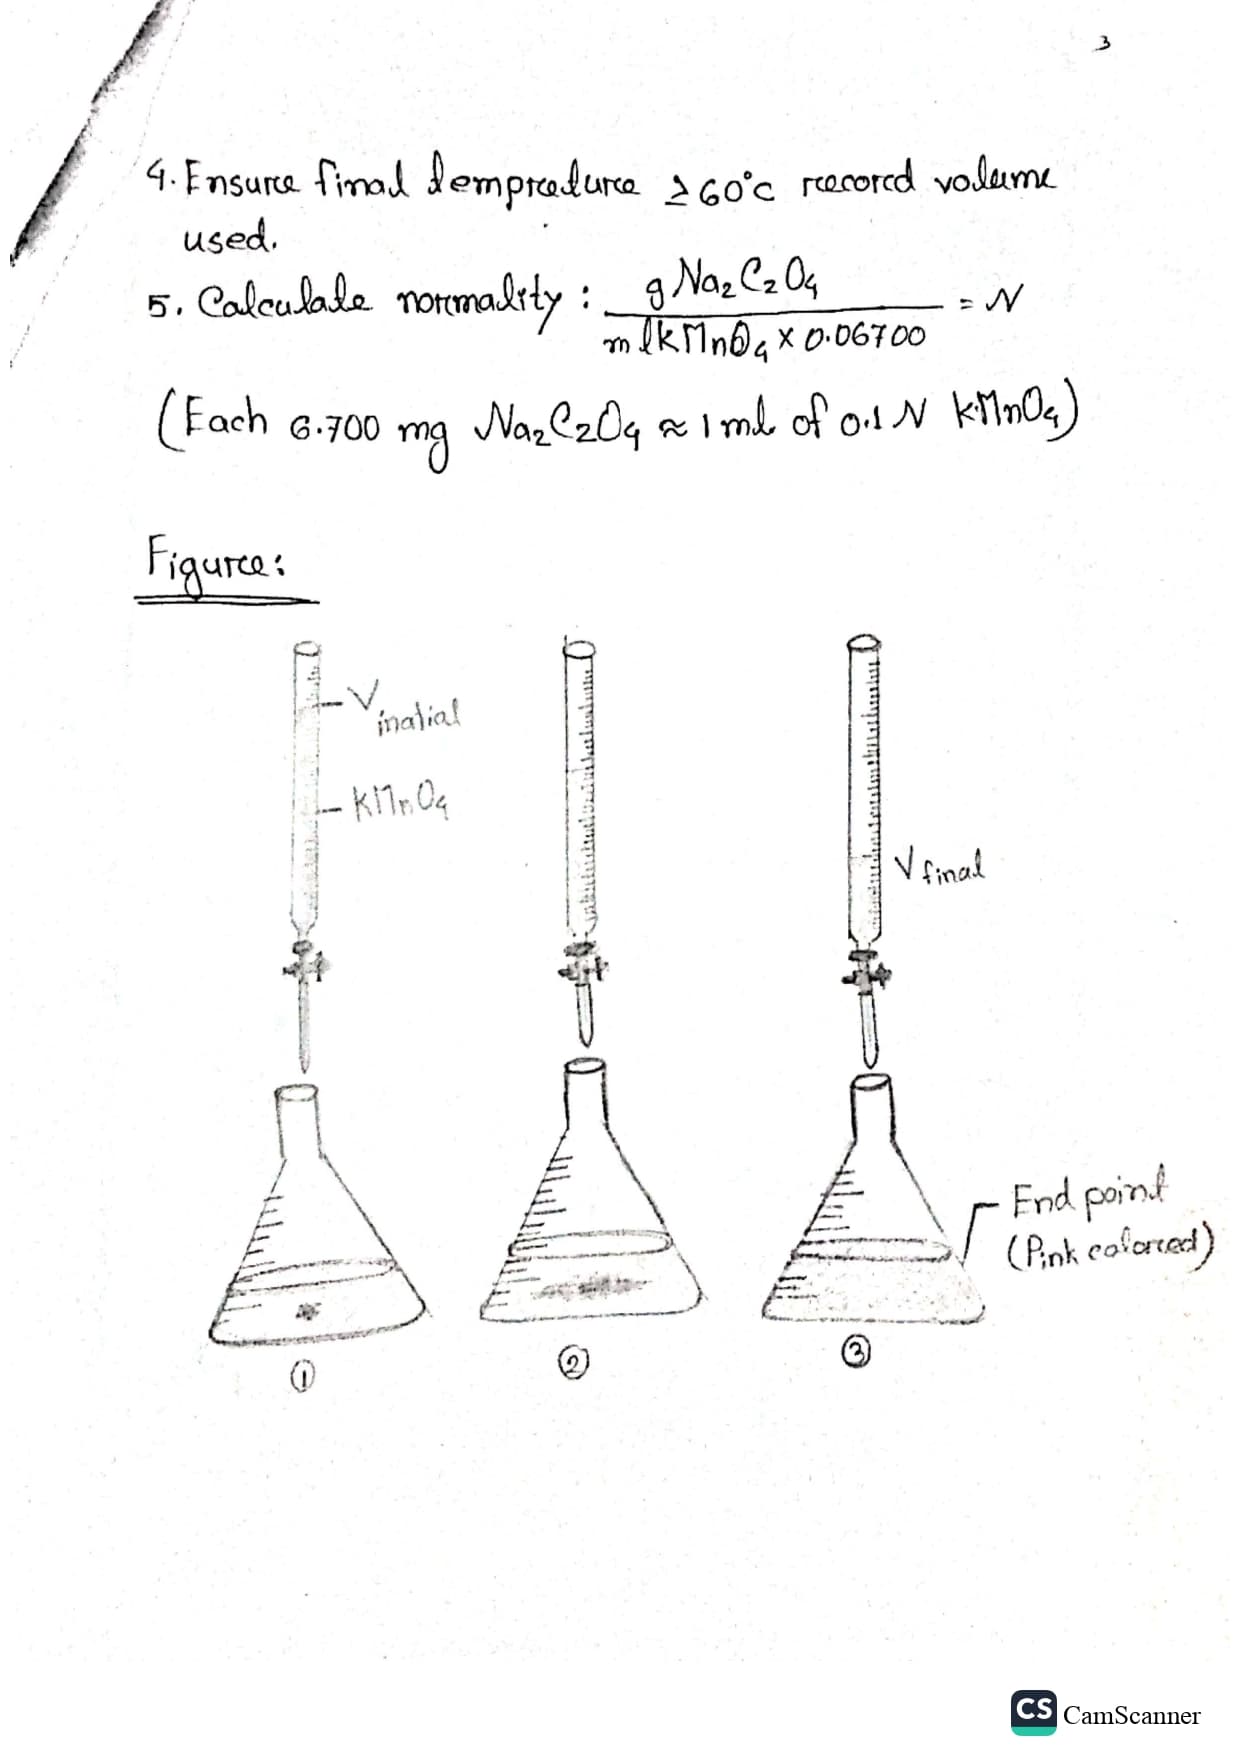 3
4. Ensure final tempreture ≥ 60°c record volume
used.
5. Calculate normality : g Na₂C₂O₄ / ml kMnO₄ × 0.06700 = N
(Each 6.700 mg Na₂C₂O₄ ≈ 1 ml of 0.1 N KMnO₄)
Figure:
V inatial
KMnO₄
V final
End point
(Pink colored)
① ② ③
CS CamScanner